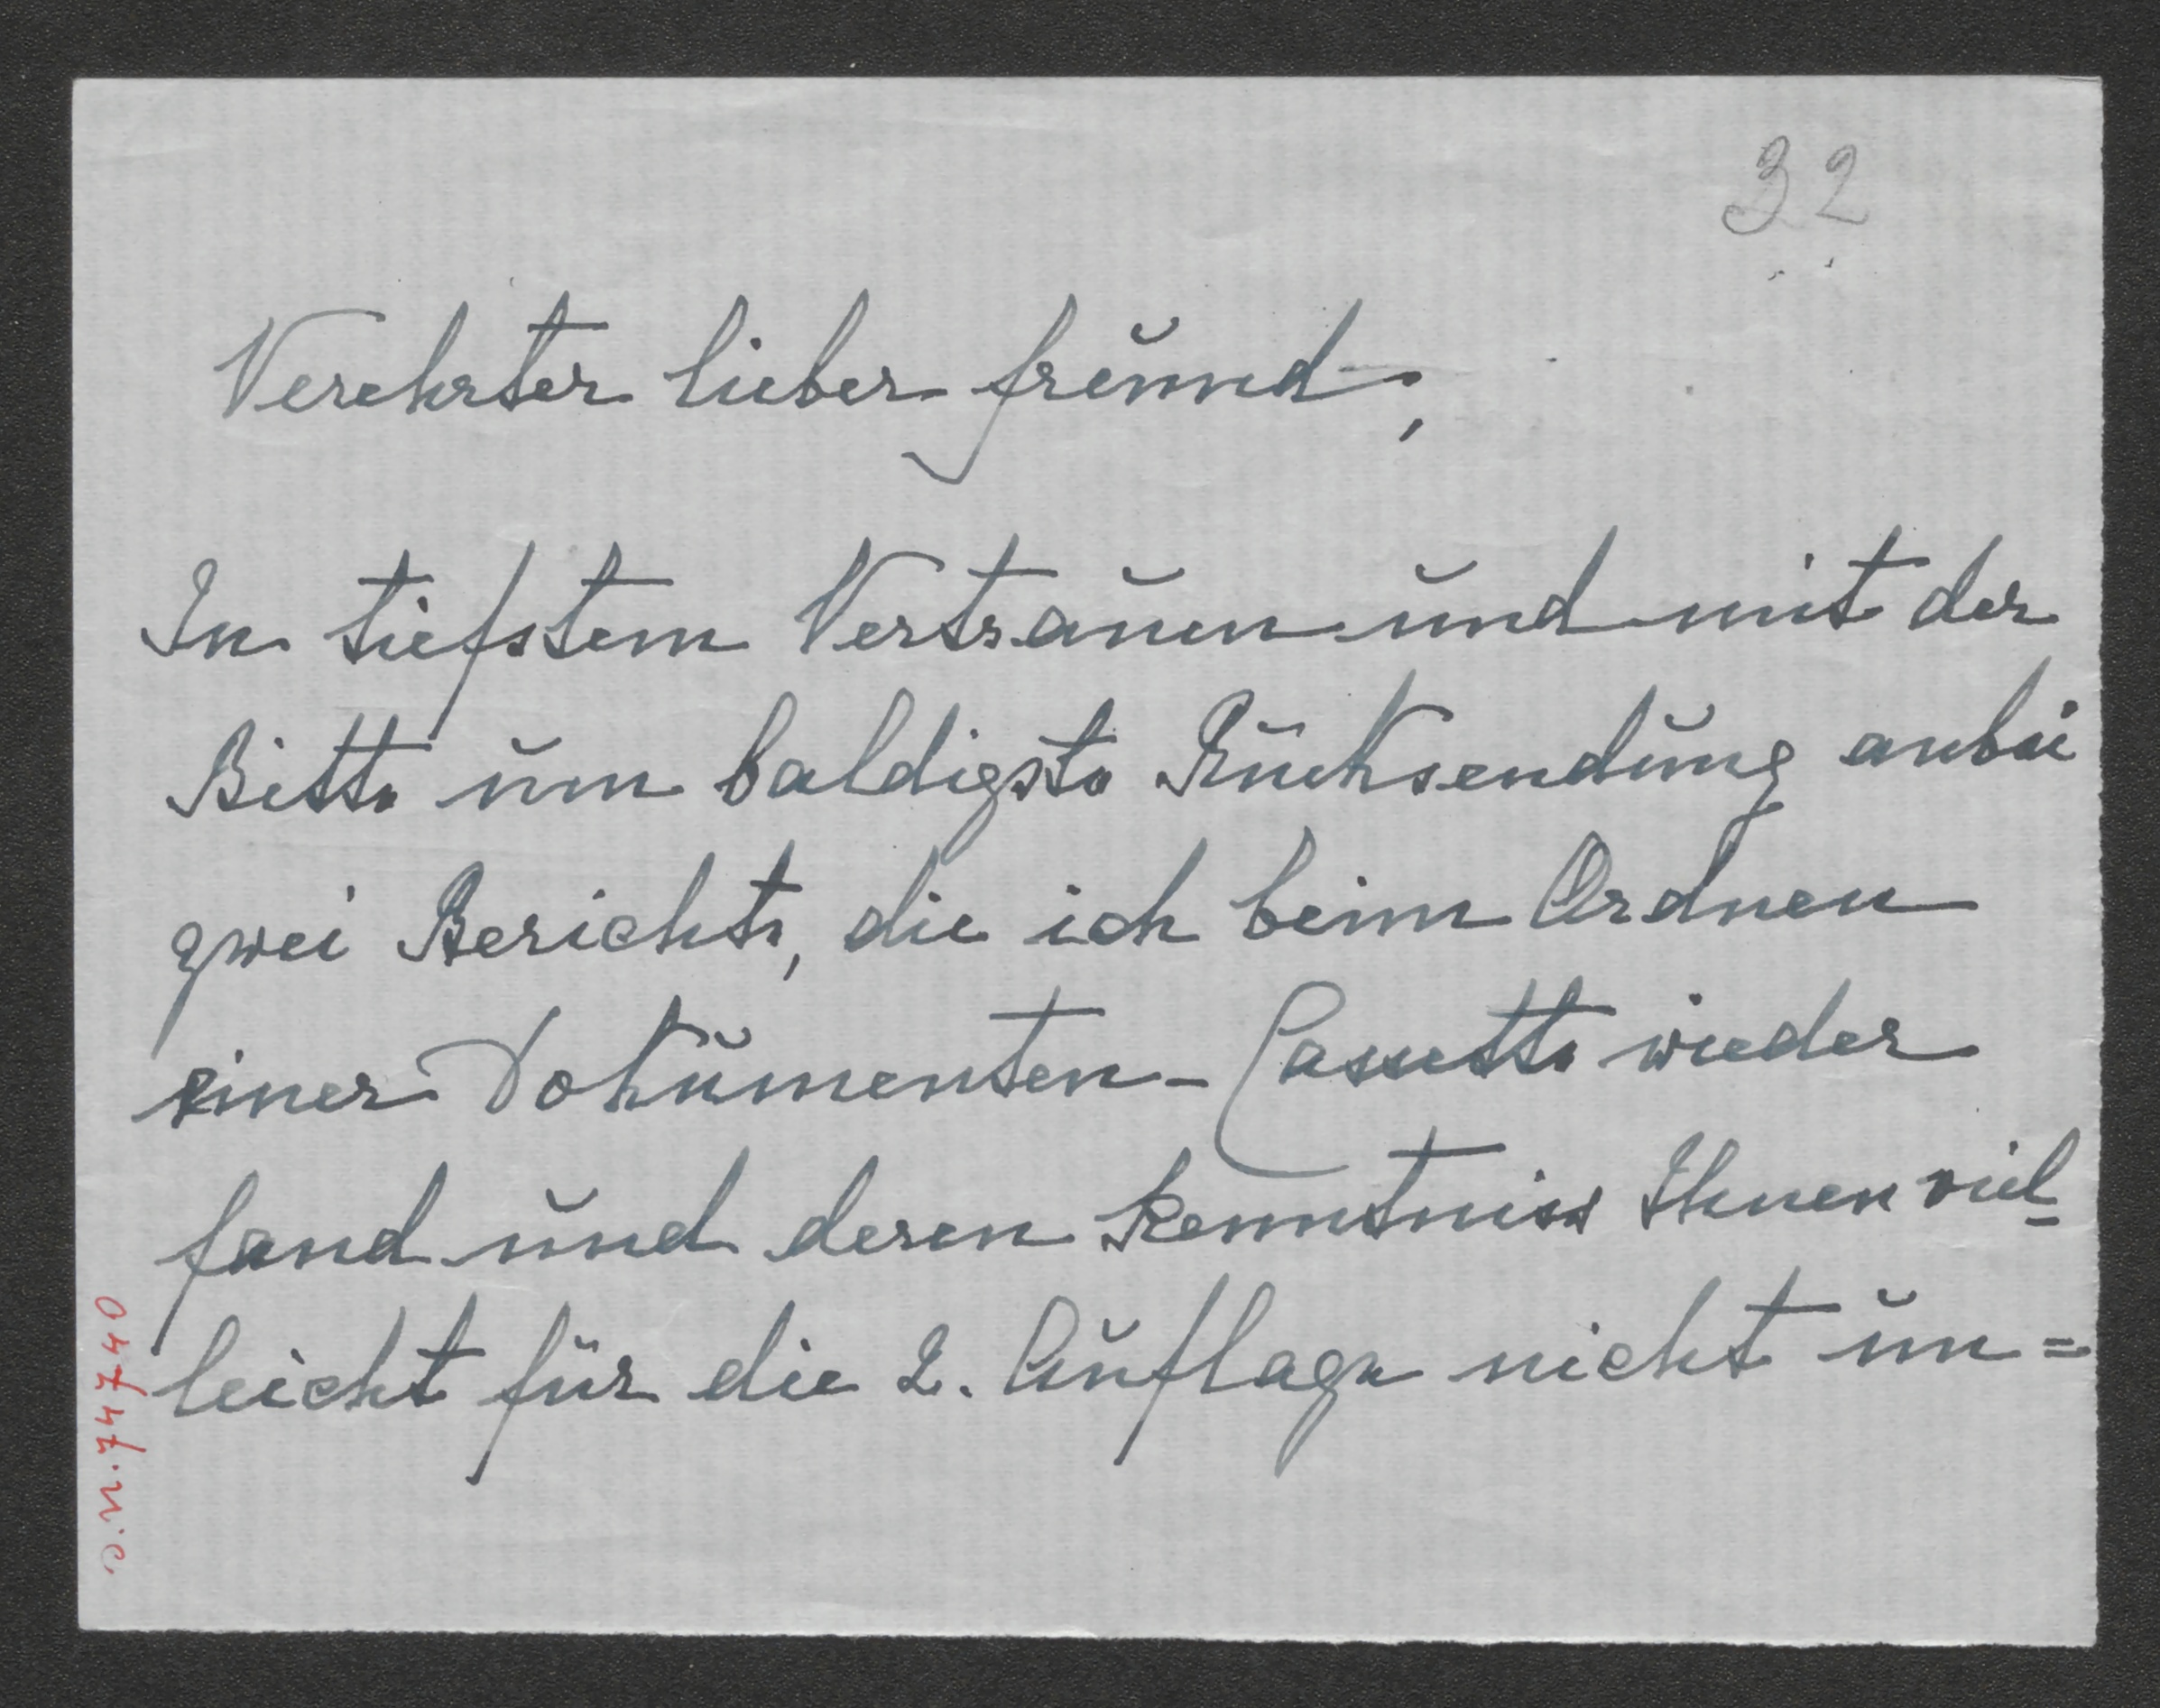 32
Verehrter lieber Freund;
In tiefstem Vertrauen und mit der
Bitte um baldigste Rücksendung anbei
zwei Berichte, die ich beim Ordnen
einer Dokumenten-Cassette wieder
fand und deren Kenntniss Ihnen viel-
leicht für die 2. Auflage nicht un=